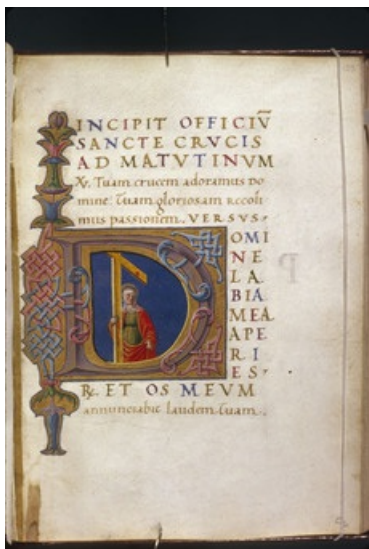 INCIPIT OFFICIŪ
SANCTE CRVCIS
AD MATVTINVM
Xv. Tuam crucem adoramus do
mine. Tuam gloriosam recoli
mus passionem. VERSVS.
DOMI
NE
LA
BIA
MEA
APE
RI
ES.
R. ET OS MEVM
annunciabit laudem tuam.